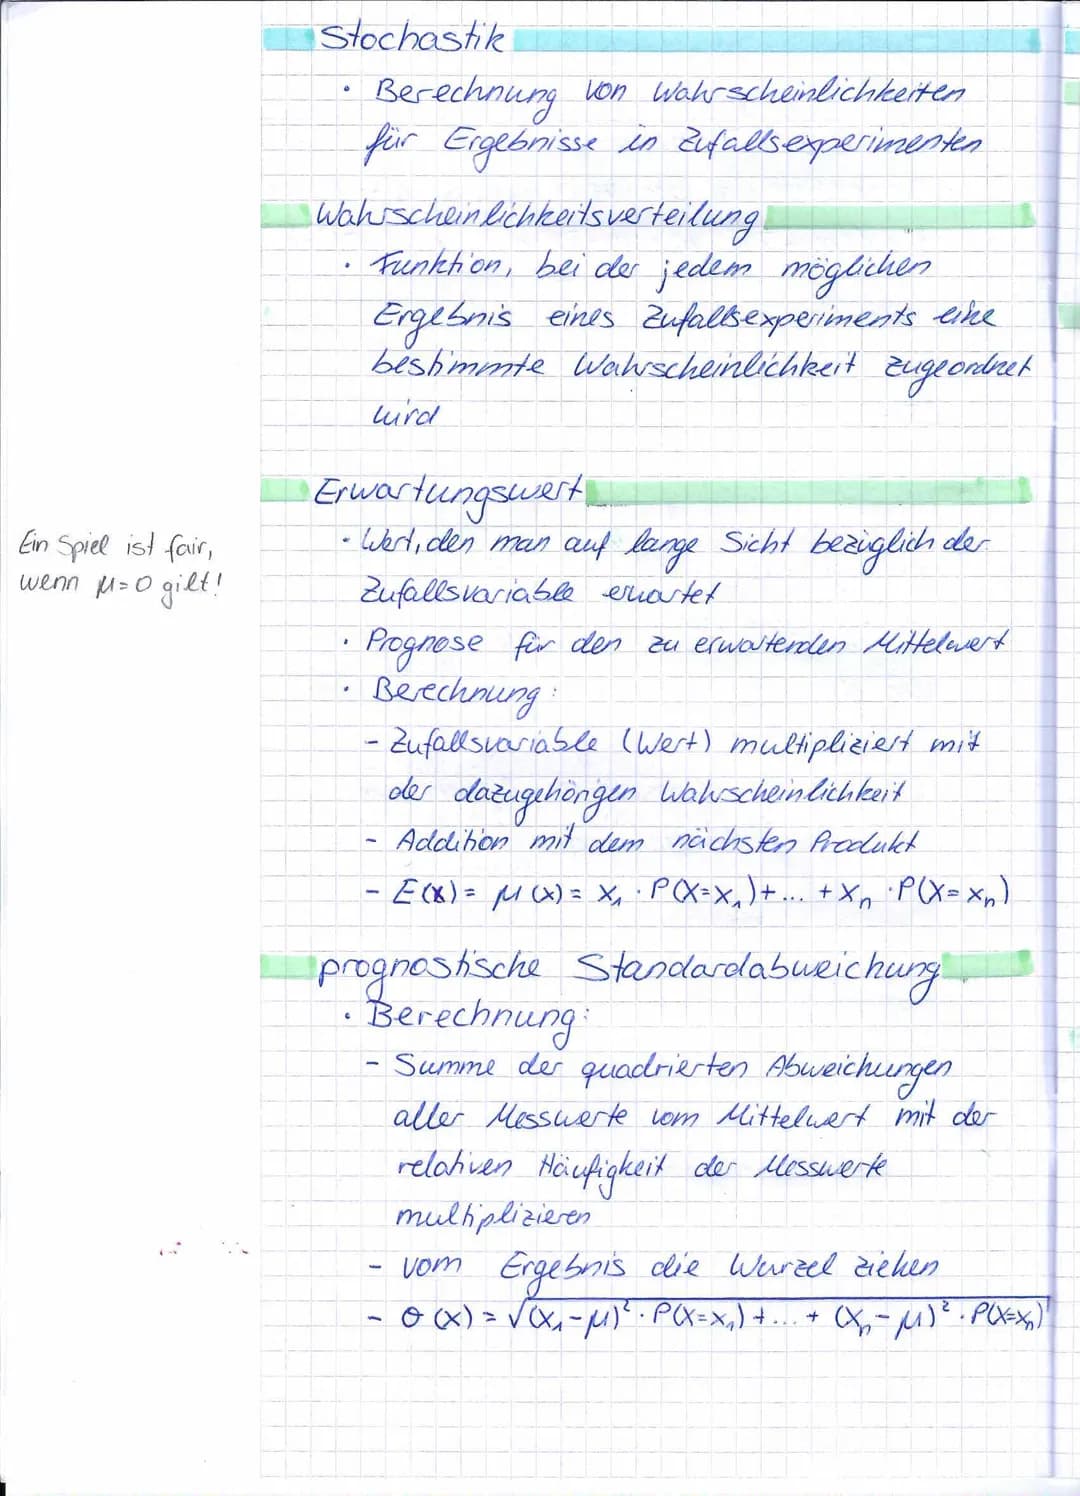 Stochastik
• Berechnung von Wahrscheinlichkeiten
für Ergebnisse in Zufallsexperimenten
Wahrscheinlichkeitsverteilung
• Funktion, bei der jedem möglichen
Ergebnis eines Zufallsexperiments eine
bestimmte Wahrscheinlichkeit zugeordnet
wird
Erwartungswert
Ein Spiel ist fair,
wenn μ=0 gilt!
• Wert, den man auf lange Sicht bezüglich der
Zufallsvariable erwartet
• Prognose für den zu erwartenden Mittelwert
• Berechnung:
- Zufallsvariable (Wert) multipliziert mit
der dazugehörigen Wahrscheinlichkeit
- Addition mit dem nächsten Produkt
- E(x) = μ(x) = x₁ · P(X=x₁)+... +xₙ ·P(X=xₙ)
prognostische Standardabweichung
• Berechnung:
- Summe der quadrierten Abweichungen
aller Messwerte vom Mittelwert mit der
relativen Häufigkeit der Messwerte
multiplizieren
- vom Ergebnis die Wurzel ziehen
- σ(x) = √(x₁-μ)² · P(X=x₁) + ... + (xₙ-μ)² · P(X=xₙ)